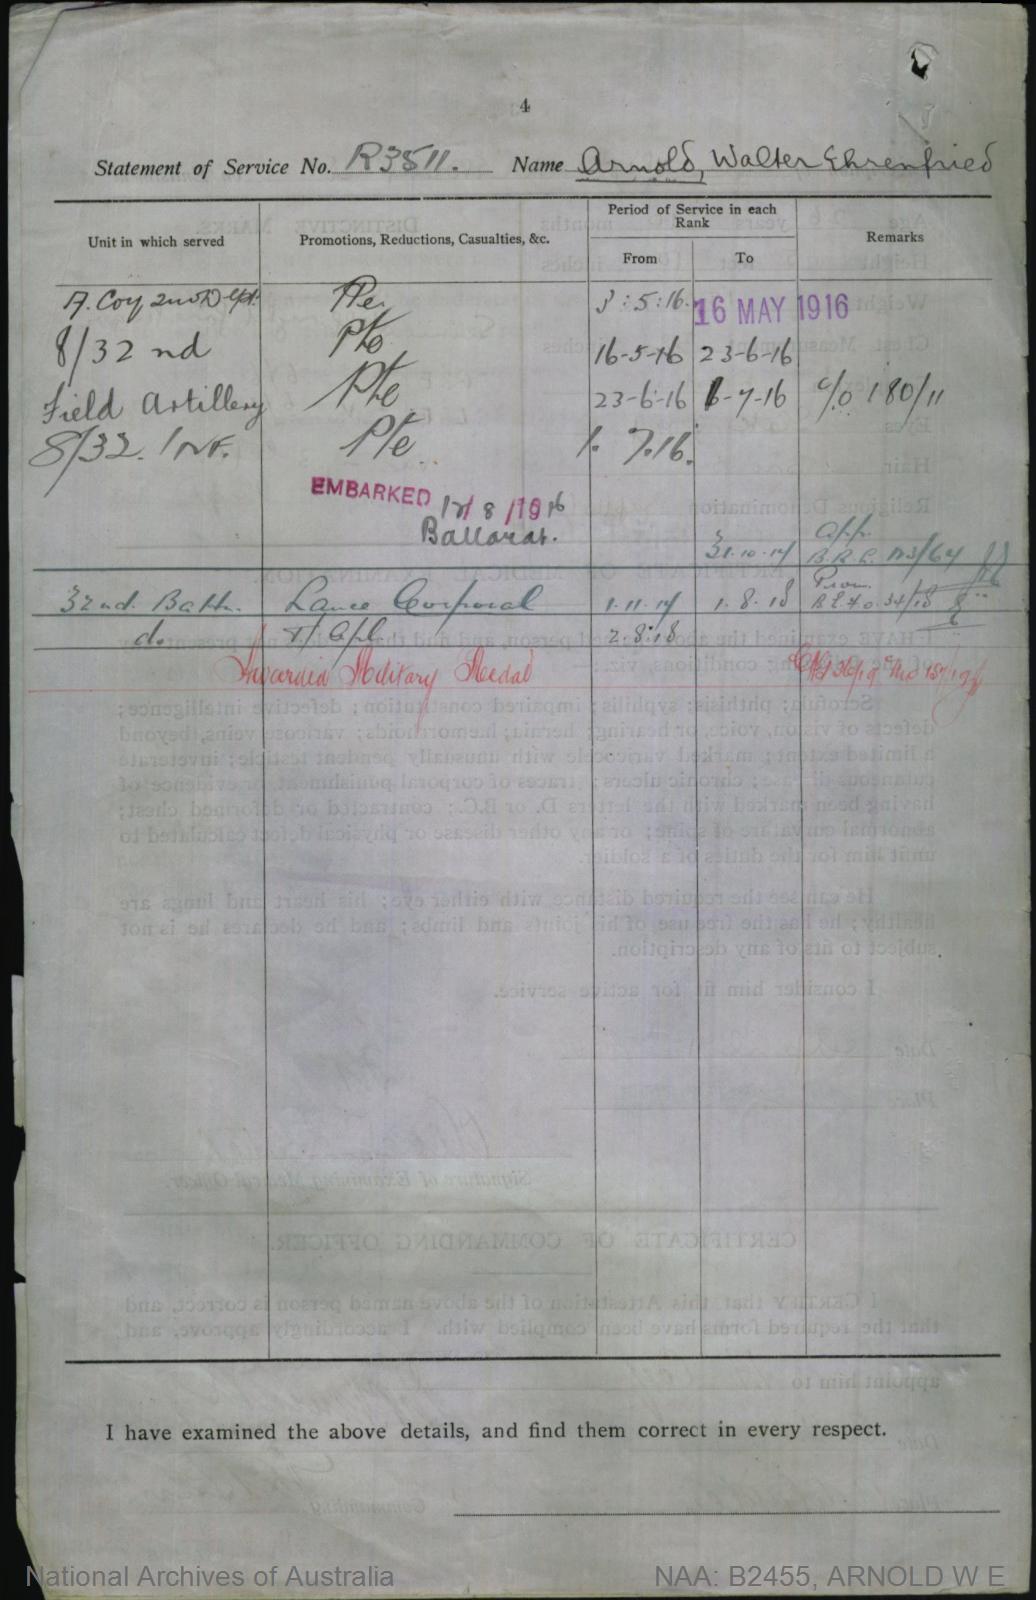 4
Statement of Service No. R3511. Name Arnold, Walter Ehrenfried
Unit in which served Promotions, Reductions, Casualties, &c. Period of Service in each Rank Remarks
From To
A. Coy 2nd Dept. Pte 3:5:16. 16 MAY 1916
8/32 nd Pte 16-5-16 23-6-16
Field Artillery Pte 23-6-16 1-7-16 c/o 180/11
8/32. INF. Pte 1. 7.16.
EMBARKED 8/1916
Ballarat.
31.10.17 App.
B.R.C. 113/64
32nd. Battn. Lance Corporal 1.11.17 1.8.18 Prom.
34/18
do. T/Cpl 2.8.18
Awarded Military Medal
I have examined the above details, and find them correct in every respect.
National Archives of Australia NAA: B2455, ARNOLD W E